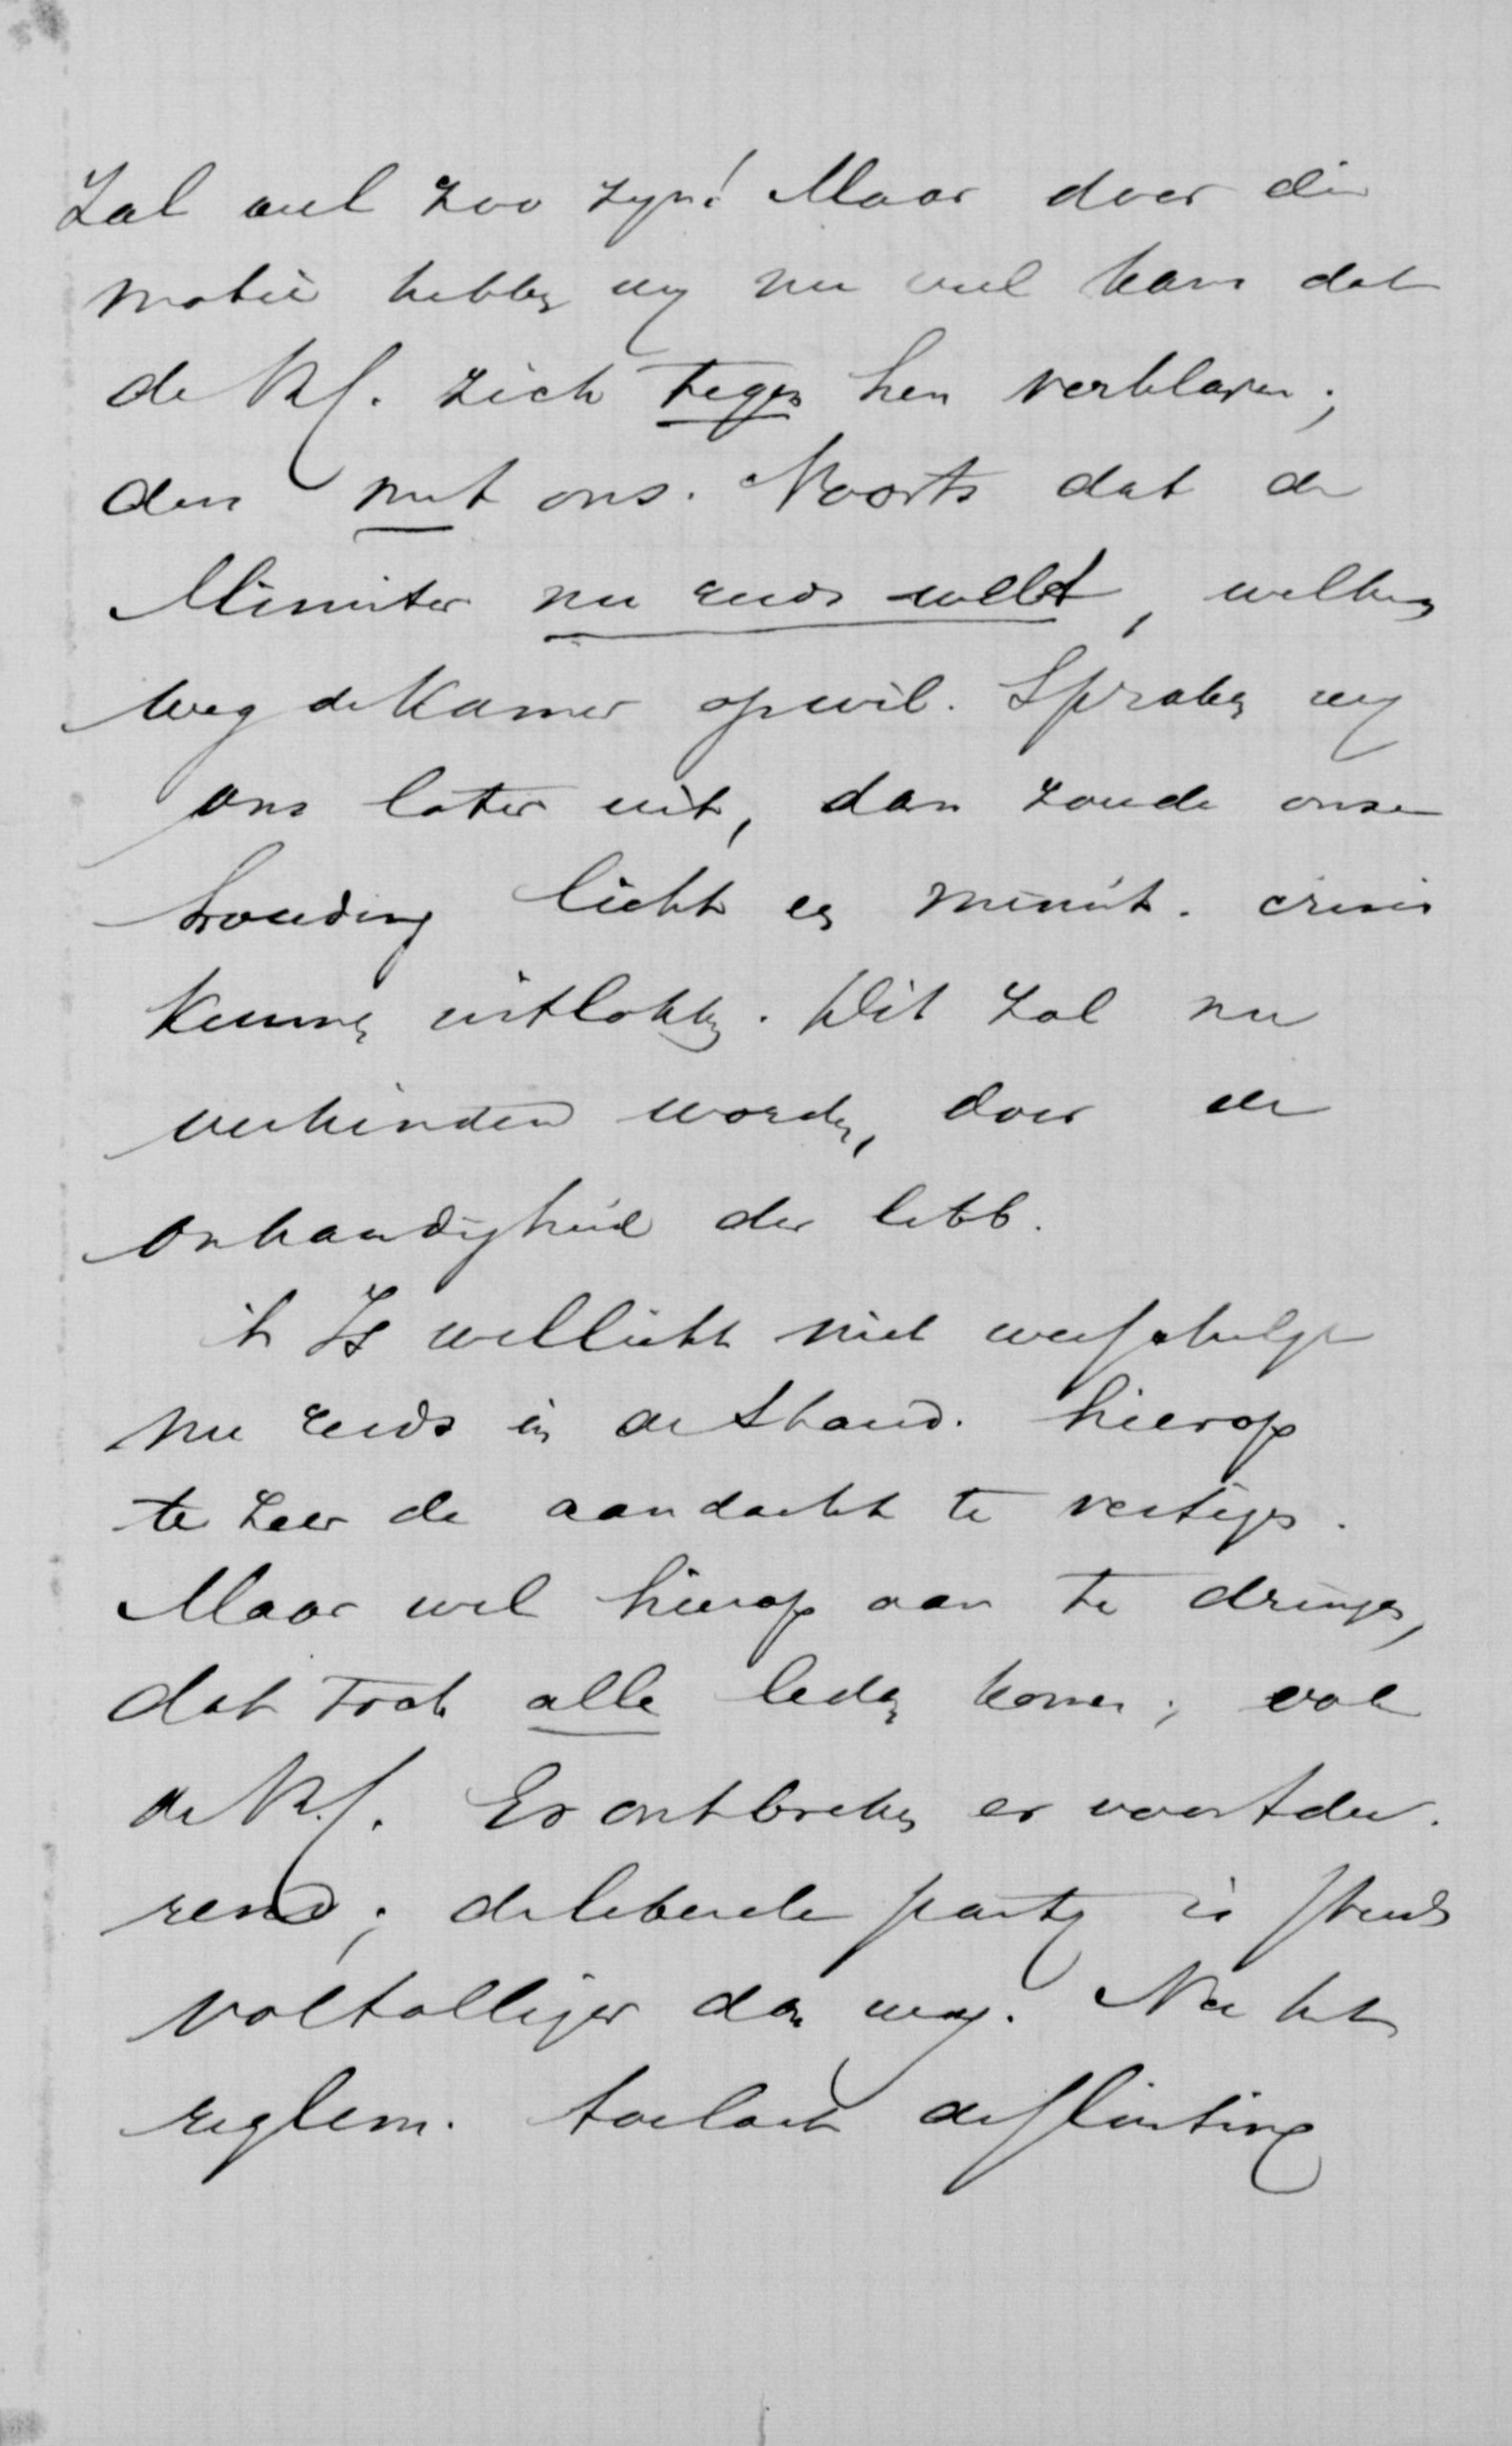 Zal wel zoo zyn! Maar door die
motie hebben wy nu veel kans dat
de Kf. zich tegen hen verklaren;
dus met ons. Voorts dat de
Minister nu reeds weet, welken
weg de Kamer op wil. Spraken wy
ons later uit, dan zoude onze
houding licht een minist. crisis
kunnen uitlokken. Dit zal nu
verhinderd worden, door de
onhandigheid der libb.
't Is wellicht niet
nu reeds in de Stand. hierop
te zeer de aandacht te vestigen.
Maar wel hierop aan te dringen,
dat toch alle leden komen; ook
de K.f. Er ontbreken er voortdu-
rend; de liberale party is steeds
voltalliger dan wy. Nu het
reglem. toelaat de sluiting